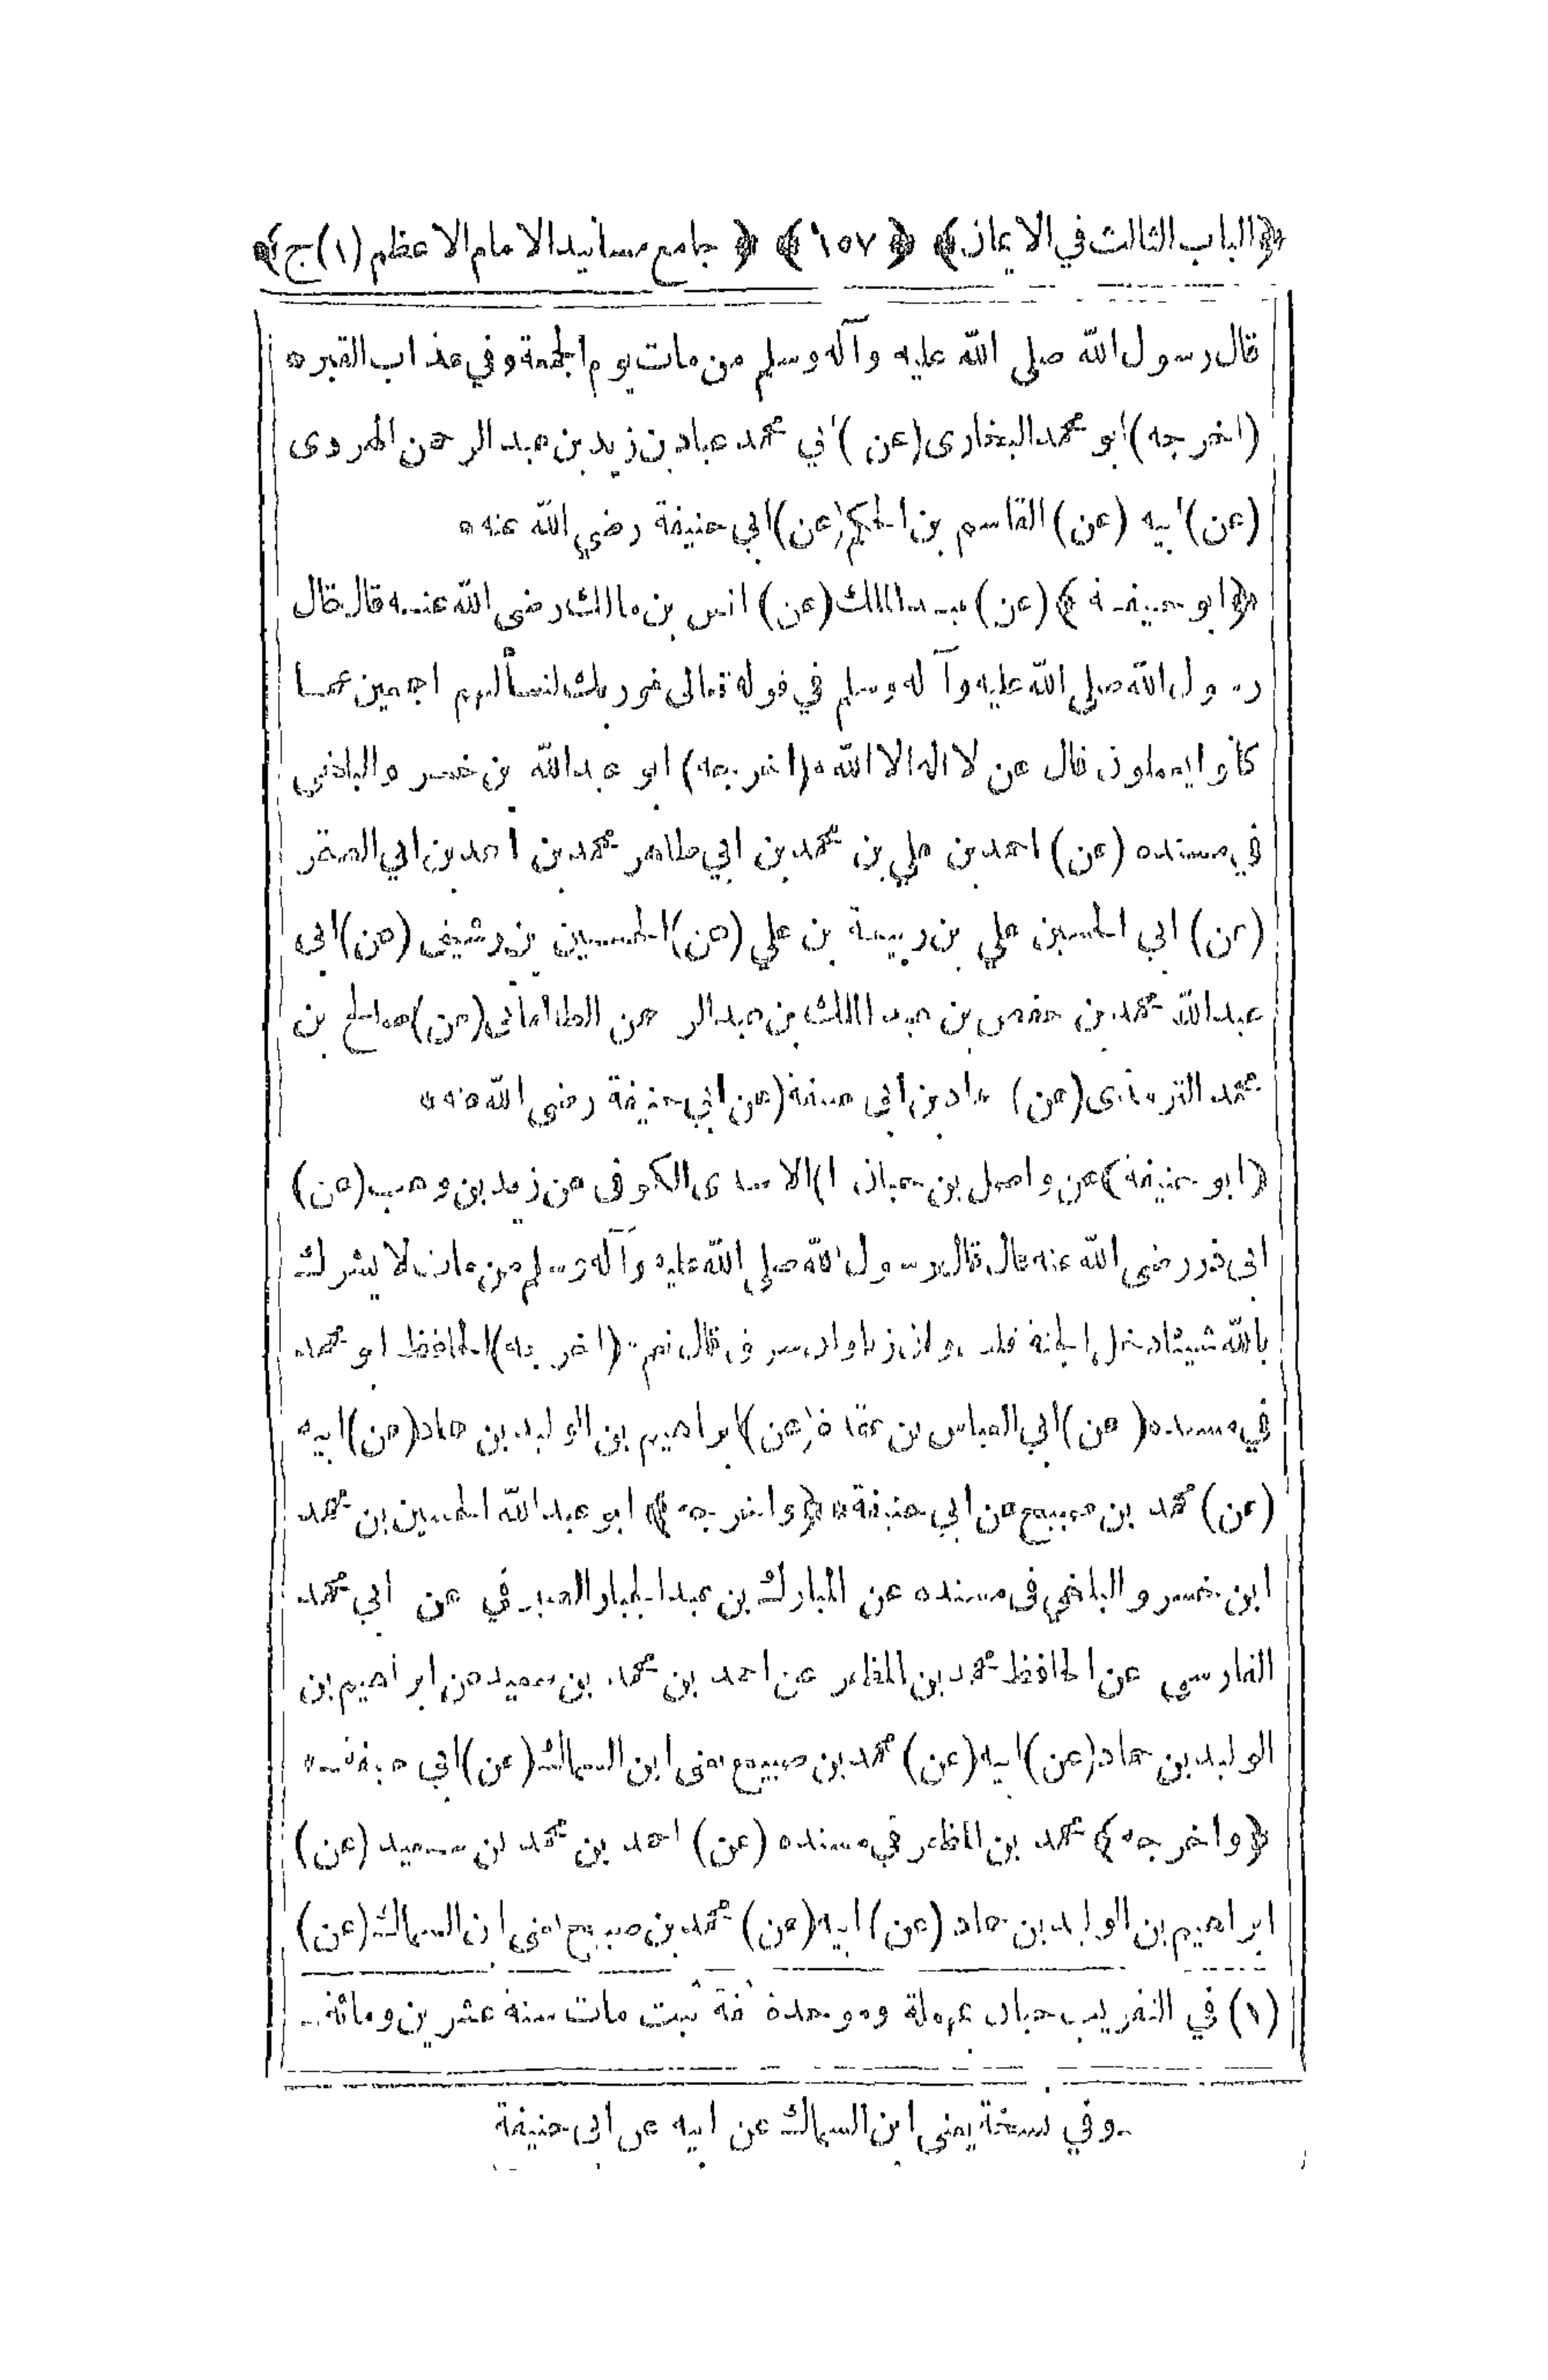 ﴿الباب الثالث في الايمان﴾ ﴿١٥٧﴾ ﴿جامع مسانيد الامام الاعظم (١) ج﴾
قال رسول الله صلى الله عليه وآله وسلم من مات يوم الجمعة وفي عذاب القبر ه
(اخرجه) ابو محمد البخارى (عن) ابي محمد عباد بن زيد بن عبد الرحمن الهروى
(عن) ابيه (عن) القاسم بن الحكم (عن) ابي حنيفة رضي الله عنه ه
﴿ابو حنيفة﴾ (عن) عبد الملك (عن) انس بن مالك رضى الله عنه قال قال
رسول الله صلى الله عليه وآله وسلم في قوله تعالى فوربك لنسألنهم اجمعين عما
كانوا يعملون قال عن لا اله الا الله ه (اخرجه) ابو عبد الله بن خسرو البلخى
في مسنده (عن) احمد بن علي بن محمد بن ابي طاهر محمد بن أحمد بن ابي الصقر
(عن) ابي الحسين علي بن ربيعة بن علي (عن) الحسين بن رشيق (عن) ابى
عبد الله محمد بن حفص بن عبد الملك بن عبد الرحمن الطالقانى (عن) صالح بن
محمد الترمذى (عن) حماد بن ابى حنيفة (عن ابي حنيفة رضى الله عنه ه
(ابو حنيفة) عن واصل بن حبان (١) الاسدى الكوفى عن زيد بن وهب (عن)
ابى ذر رضى الله عنه قال قال رسول الله صلى الله عليه وآله وسلم من مات لا يشرك
بالله شيئا دخل الجنة قلت وان زنا وان سرق قال نعم ه (اخرجه) الحافظ ابو محمد
في مسنده (عن) ابي العباس بن عقدة (عن) ابراهيم بن الوليد بن حماد (عن) ابيه
(عن) محمد بن صبيح عن ابي حنيفة ه ﴿واخرجه﴾ ابو عبد الله الحسين بن محمد
ابن خسرو البلخي فى مسنده عن المبارك بن عبد الجبار الصيرفي عن ابي محمد
الفارسى عن الحافظ محمد بن المظفر عن احمد بن محمد بن سعيد عن ابراهيم بن
الوليد بن حماد (عن) ابيه (عن) محمد بن صبيح يعنى ابن السماك (عن) ابي حنيفة ه
﴿واخرجه﴾ محمد بن المظفر في مسنده (عن) احمد بن محمد بن سعيد (عن)
ابراهيم بن الوليد بن حماد (عن) ابيه (عن) محمد بن صبيح يعنى ابن السماك (عن)
(١) في التقريب حبان بمهملة وموحدة ثقة ثبت مات سنة عشرين ومائة ..
ـ وفي نسخة يعنى ابن السماك عن ابيه عن ابى حنيفة